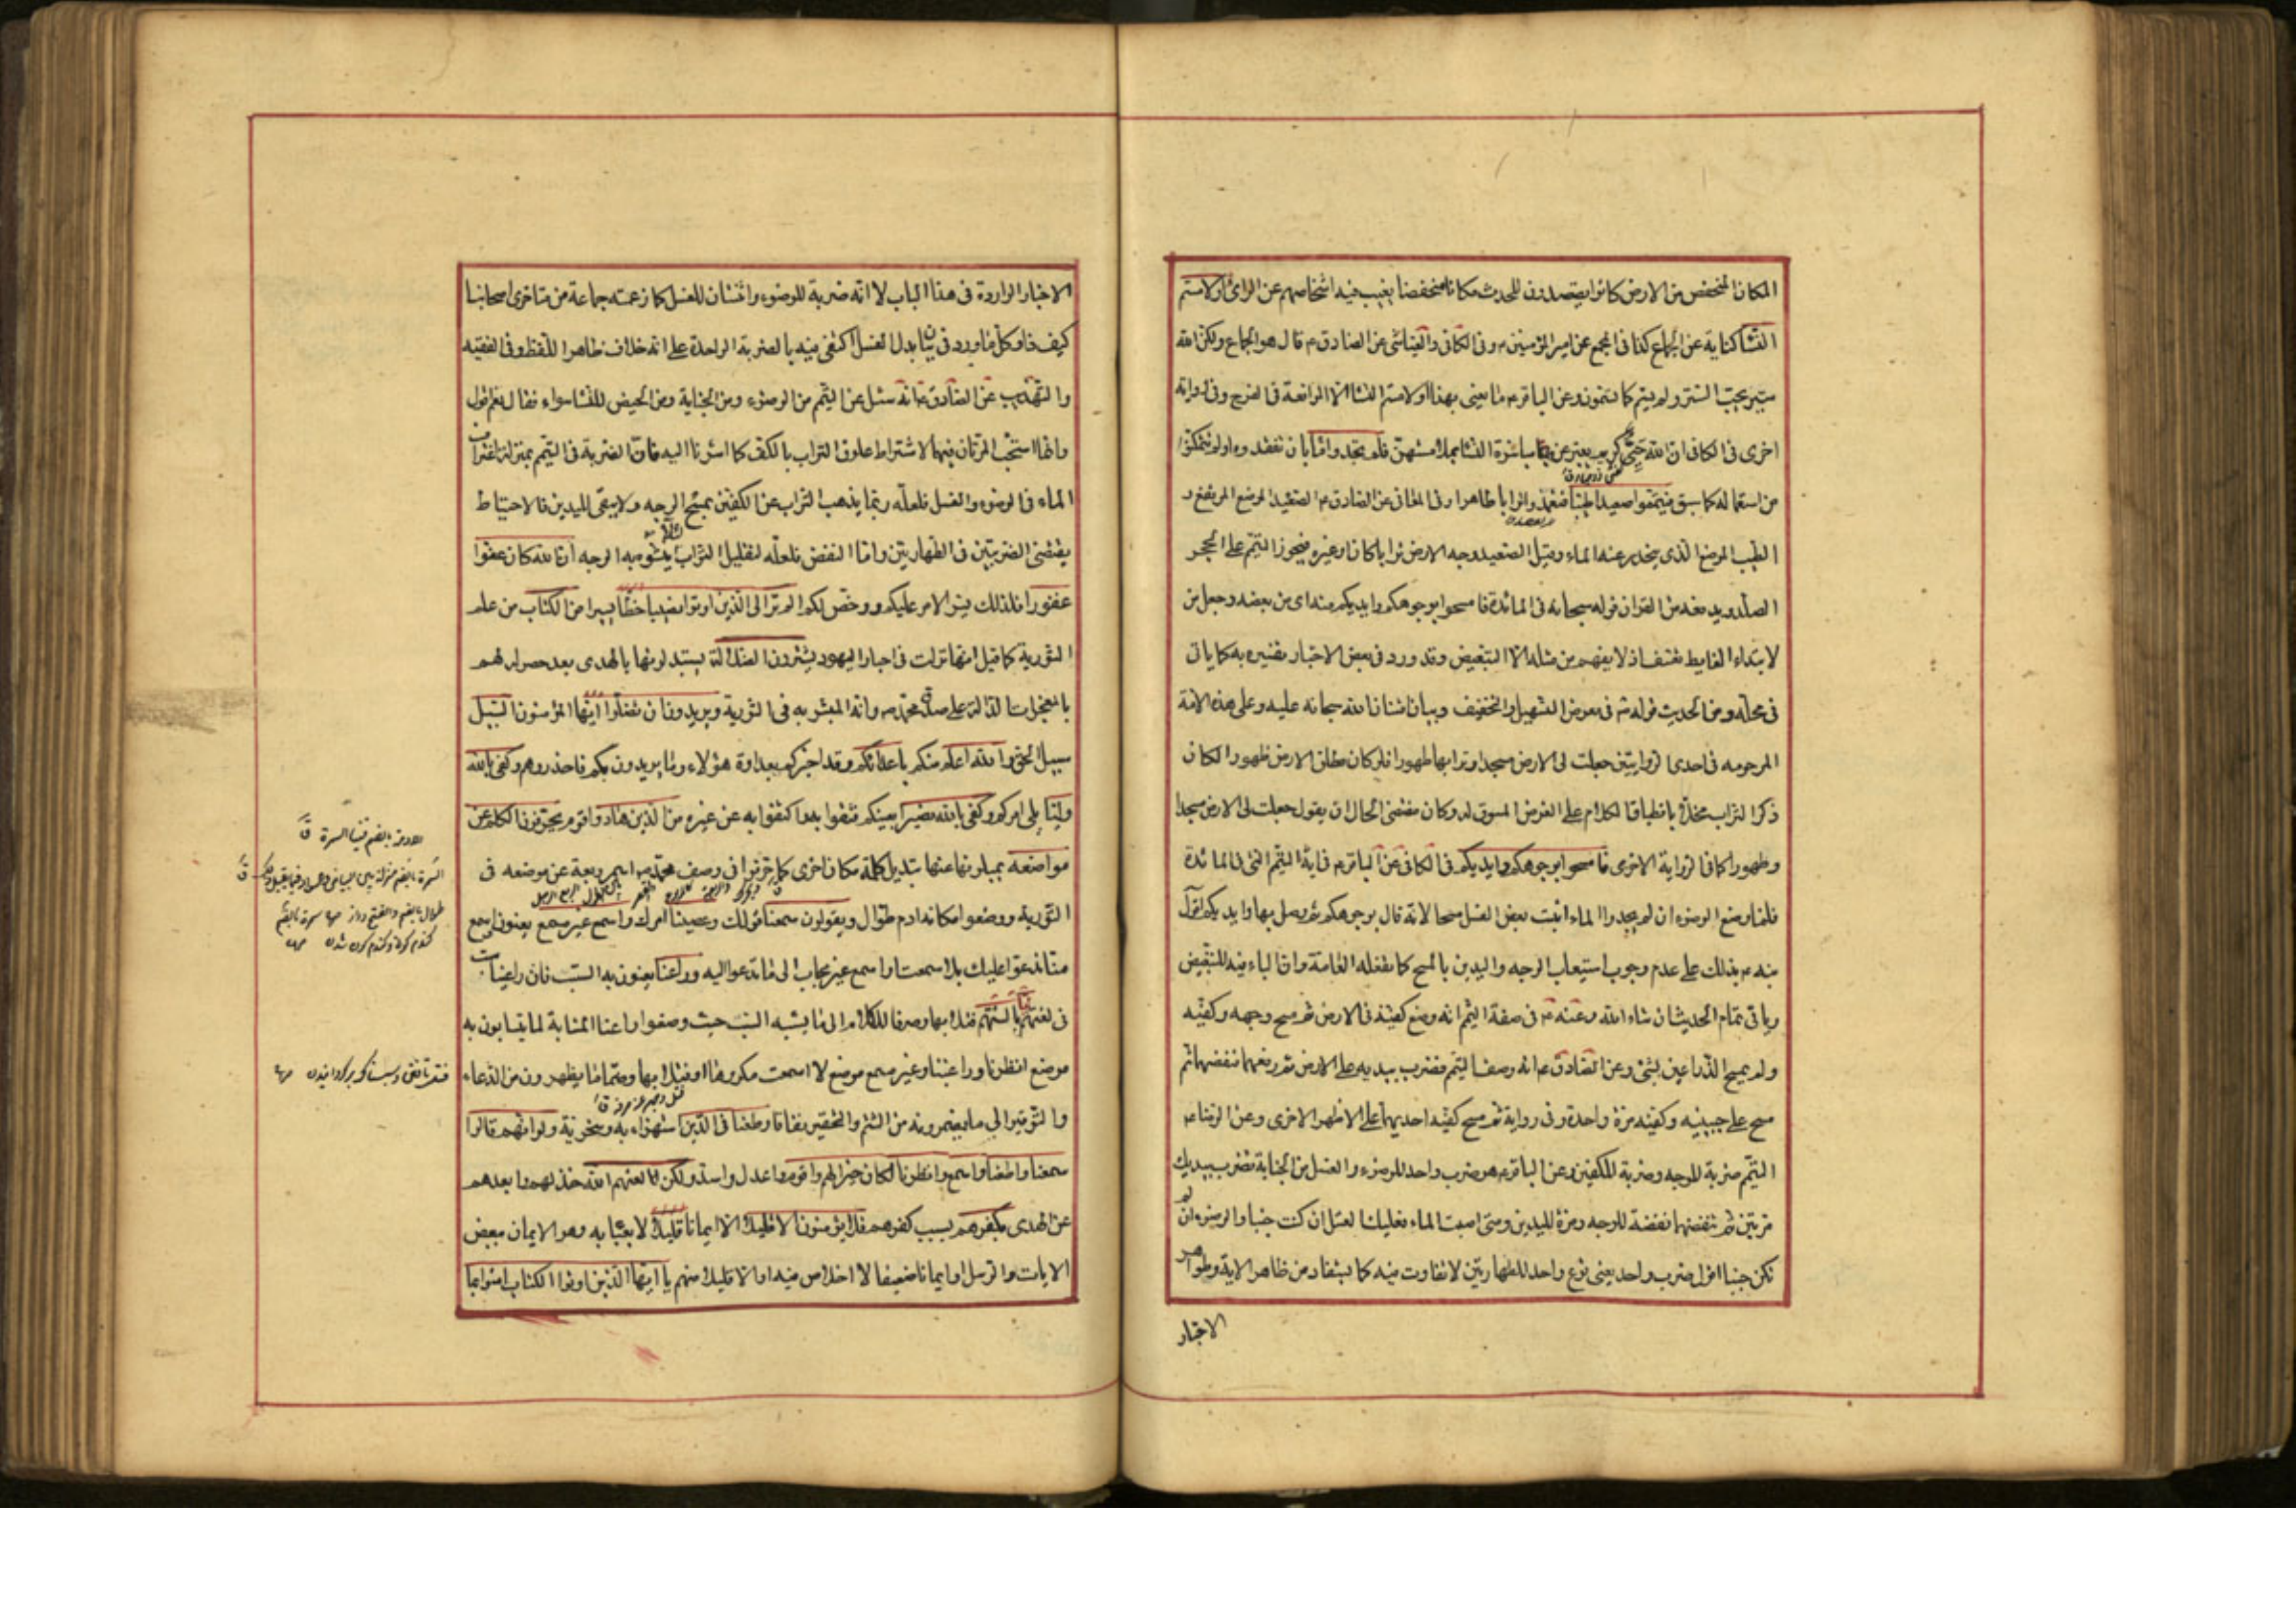 المكان المنخفض من الارض كانوا يقصدون للحدث مكانا منخفضا يغيب فيه اشخاصهم عن الرائي او لامستم
النسا كناية عن الجماع كذا في المجمع عن امير المؤمنين ع وفي الكافي والعياشي عن الصادق ع قال هو الجماع ولكن الله
ستير يحب الستر ولم يسم كما تسمون وعن الباقر ع ما يعني بهذا او لامستم النسا الا المواقعة في الفرج وفي رواية
اخرى في الكافي ان الله حيي كريم يعبر عن مباشرة النسا بملامستهن فلم تجدوا ماء بان تفقدوه او لم تتمكنوا
من استعماله كما سبق فتيمموا صعيدا طيبا فتعمدوا ترابا طاهرا وفي المعاني عن الصادق ع الصعيد الموضع المرتفع و
الطيب الموضع الذي ينحدر عنه الماء وقيل الصعيد وجه الارض ترابا كان او غيره فيجوز التيمم على الحجر
الصلد ويدفعه من القران قوله سبحانه في المائدة فامسحوا بوجوهكم وايديكم منه اي من بعضه وجعل من
لابتداء الغاية تعسف اذ لا يفهم من مثله الا التبعيض وقد ورد في بعض الاخبار تفسيره به كما ياتي
في محله ومن الحديث قوله ص في معرض التسهيل والتخفيف وبيان امتنان الله سبحانه عليه وعلى هذه الامة
المرحومه في احدى الروايتين جعلت لي الارض مسجدا وترابها طهورا فلو كان مطلق الارض طهورا لكان
ذكر التراب مخلا بانطباق الكلام على الغرض المسوق له وكان مقتضى الحال ان يقول جعلت لي الارض مسجدا
وطهورا كما في الرواية الاخرى فامسحوا بوجوهكم وايديكم في الكافي عن الباقر ع في اية التيمم التي في المائدة
فلما وضع الوضوء ان لم يجدوا الماء اثبت بعض الغسل مسحا لانه قال بوجوهكم ثم وصل بها وايديكم اقول
نبه ع بذلك على عدم وجوب استيعاب الوجه واليدين بالمسح كما تفعله العامة وان الباء فيه للتبعيض
وياتي تمام الحديث ان شاء الله وعنه ع في صفة التيمم انه وضع كفيه في الارض ثم مسح وجهه وكفيه
ولم يمسح الذراعين بشئ وعن الصادق ع انه وصف التيمم فضرب بيديه على الارض ثم رفعهما فنفضهما ثم
مسح على جبينيه وكفيه مرة واحدة وفي رواية ثم مسح كفيه احديهما على ظهر الاخرى وعن الرضا ع
التيمم ضربة للوجه وضربة للكفين وعن الباقر ع هو ضرب واحد للوضوء والغسل من الجنابة تضرب بيديك
مرتين ثم تنفضهما نفضة للوجه ومرة لليدين ومتى اصبت الماء فعليك الغسل ان كنت جنبا والوضوء ان لم
تكن جنبا اقول ضرب واحد يعني نوع واحد للطهارتين لا تفاوت فيه كما يستفاد من ظاهر الاية وظواهر
الاخبار
الاخبار الواردة في هذا الباب لا انه ضربة للوضوء واثنتان للغسل كما زعمته جماعة من متاخري اصحابنا
كيف ذا وكل ما ورد في بيان بدل الغسل اكتفي فيه بالضربة الواحدة على انه خلاف ظاهر اللفظ وفي الفقيه
والتهذيب عن الصادق ع انه سئل عن التيمم من الوضوء ومن الجنابة ومن الحيض للنسا سواء فقال نعم اقول
وانما استحب المرتان فيهما لاشتراط علوق التراب بالكف كما اشرنا اليه فان الضربة في التيمم بمنزلة اغتراف
الماء في الوضوء والغسل فلعله ربما يذهب التراب عن الكفين بمسح الوجه ولا يبقى لليدين فالاحتياط
يقتضي الضربتين في الطهارتين واما النفض فلعله لتقليل التراب لئلا يتشوه به الوجه ان الله كان عفوا
غفورا فلذلك يسر الامر عليكم ورخص لكم الم تر الى الذين اوتوا نصيبا حظا يسيرا من الكتاب من علم
التورية كما قيل انها نزلت في احبار اليهود يشترون الضلالة يستبدلونها بالهدى بعد حصوله لهم
بالمعجزات الدالة على صدق محمد ص وانه المبشر به في التورية ويريدون ان تضلوا ايها المؤمنون السبيل
سبيل الحق والله اعلم منكم باعدائكم وقد اخبركم بعداوة هؤلاء وما يريدون بكم فاحذروهم وكفى بالله
وليا يلي امركم وكفى بالله نصيرا يعينكم فثقوا به واكتفوا به عن غيره من الذين هادوا قوم يحرفون الكلم عن
مواضعه يميلونها عنها بتبديل كلمة مكان اخرى كما حرفوا في وصف محمد ص اسمر ربعة عن موضعه في
التورية ووضعوا مكانه ادم طوال ويقولون سمعنا قولك وعصينا امرك واسمع غير مسمع يعنون اسمع
منا ندعو عليك بلا سمعت او اسمع غير مجاب الى ما تدعو اليه وراعنا يعنون به السب فان راعنا سب
في لغتهم ليا بالسنتهم فتلا بها وصرفا للكلام الى ما يشبه السب حيث وضعوا راعنا المشابة لما يتسابون به
موضع انظرنا وراعينا وغير مسمع موضع لا اسمعت مكروها او فتلا بها وضما ما يظهرون من الدعاء
والتوقير الى ما يضمرونه من الشتم والتحقير نفاقا وطعنا في الدين استهزاء به وسخرية ولو انهم قالوا
سمعنا واطعنا واسمع وانظرنا لكان خيرا لهم واقوم واعدل واسد ولكن لعنهم الله خذلهم وابعدهم
عن الهدى بكفرهم بسبب كفرهم فلا يؤمنون الا قليلا الا ايمانا قليلا لا يعبا به وهو الايمان ببعض
الايات والرسل او ايمانا ضعيفا لا اخلاص فيه او الا قليلا منهم يا ايها الذين اوتوا الكتاب امنوا بما